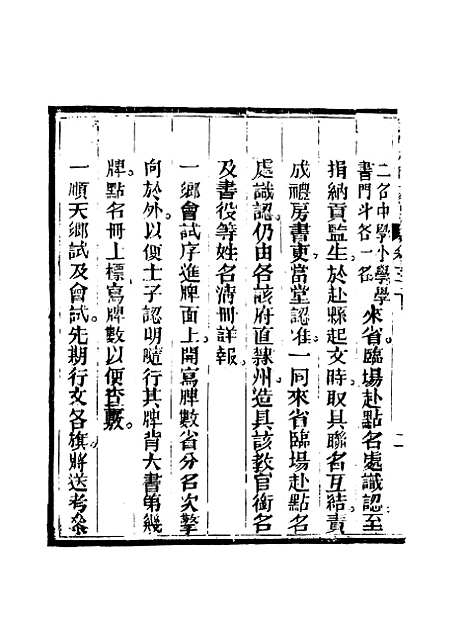 二名中學小學學
書門斗各一名
來省臨場赴點名處識認至
捐納貢監生於赴縣起文時取具聯名互結責
成禮房書吏當堂認准一同來省臨場赴點名
處識認仍由各該府直隸州造具該教官銜名
及書役等姓名清冊詳報
一鄉會試序進牌面上開寫牌數省分名次擎
向於外以便士子認明隨行其牌背大書第幾
牌點名冊上標寫牌數以便查覈
一順天鄉試及會試先期行文各旗將送考叅
二